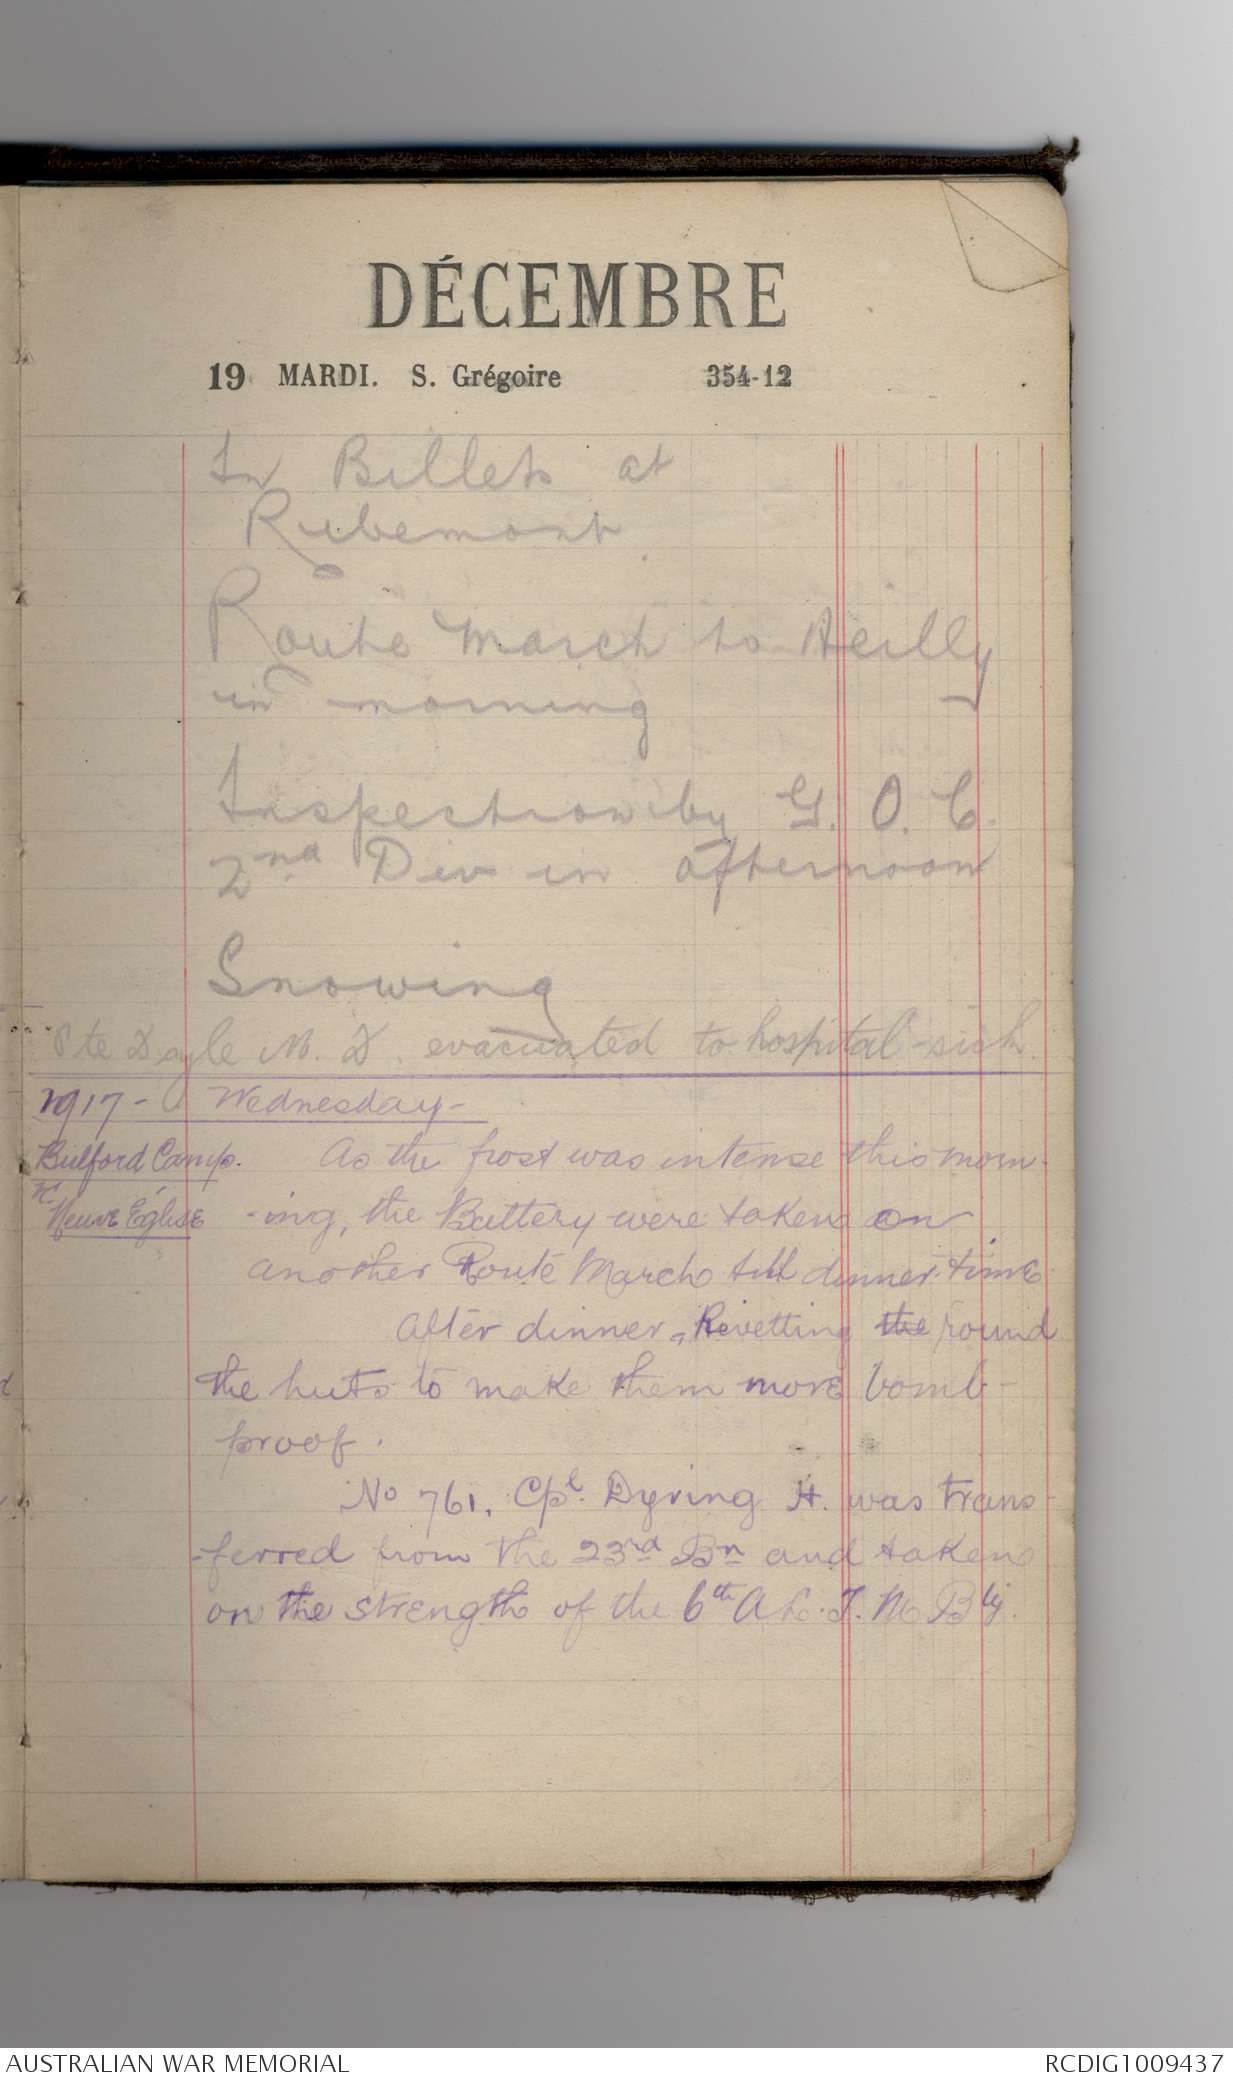 DÉCEMBRE
19 MARDI. S. Grégoire 354-12
In Billets at
Ribemont
Route March to Heilly
in morning
Inspection by G. O. C.
2nd Div in afternoon
Snowing
Pte Doyle M. D. evacuated to hospital - sick.
1917 - Wednesday -
Bulford Camp. As the frost was intense this morn-
nr Neuve Église -ing, the Battery were taken on
another Route March till dinner-time
After dinner, Rivetting the round
the huts to make them more bomb-
proof.
No 761, Cpl. Dyring H. was trans-
-ferred from the 23rd Bn and taken
on the strength of the 6th A. L. T. M. Bty.
AUSTRALIAN WAR MEMORIAL RCDIG1009437